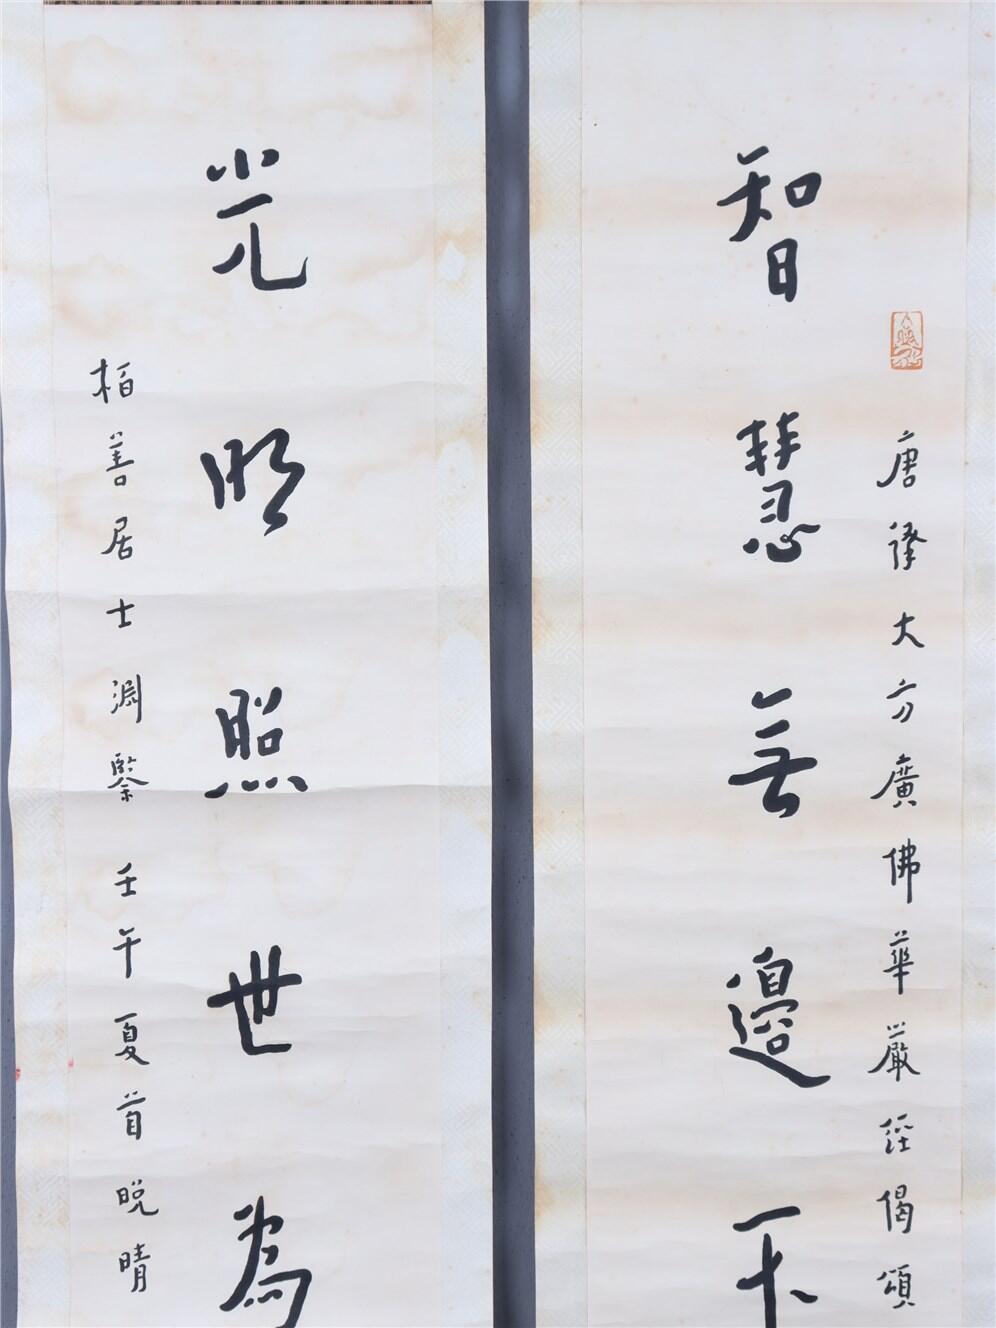 唐譯大方廣佛華嚴經偈頌
智慧無邊不
光明照世為
柏善居士淵鑒 壬午夏首晚晴